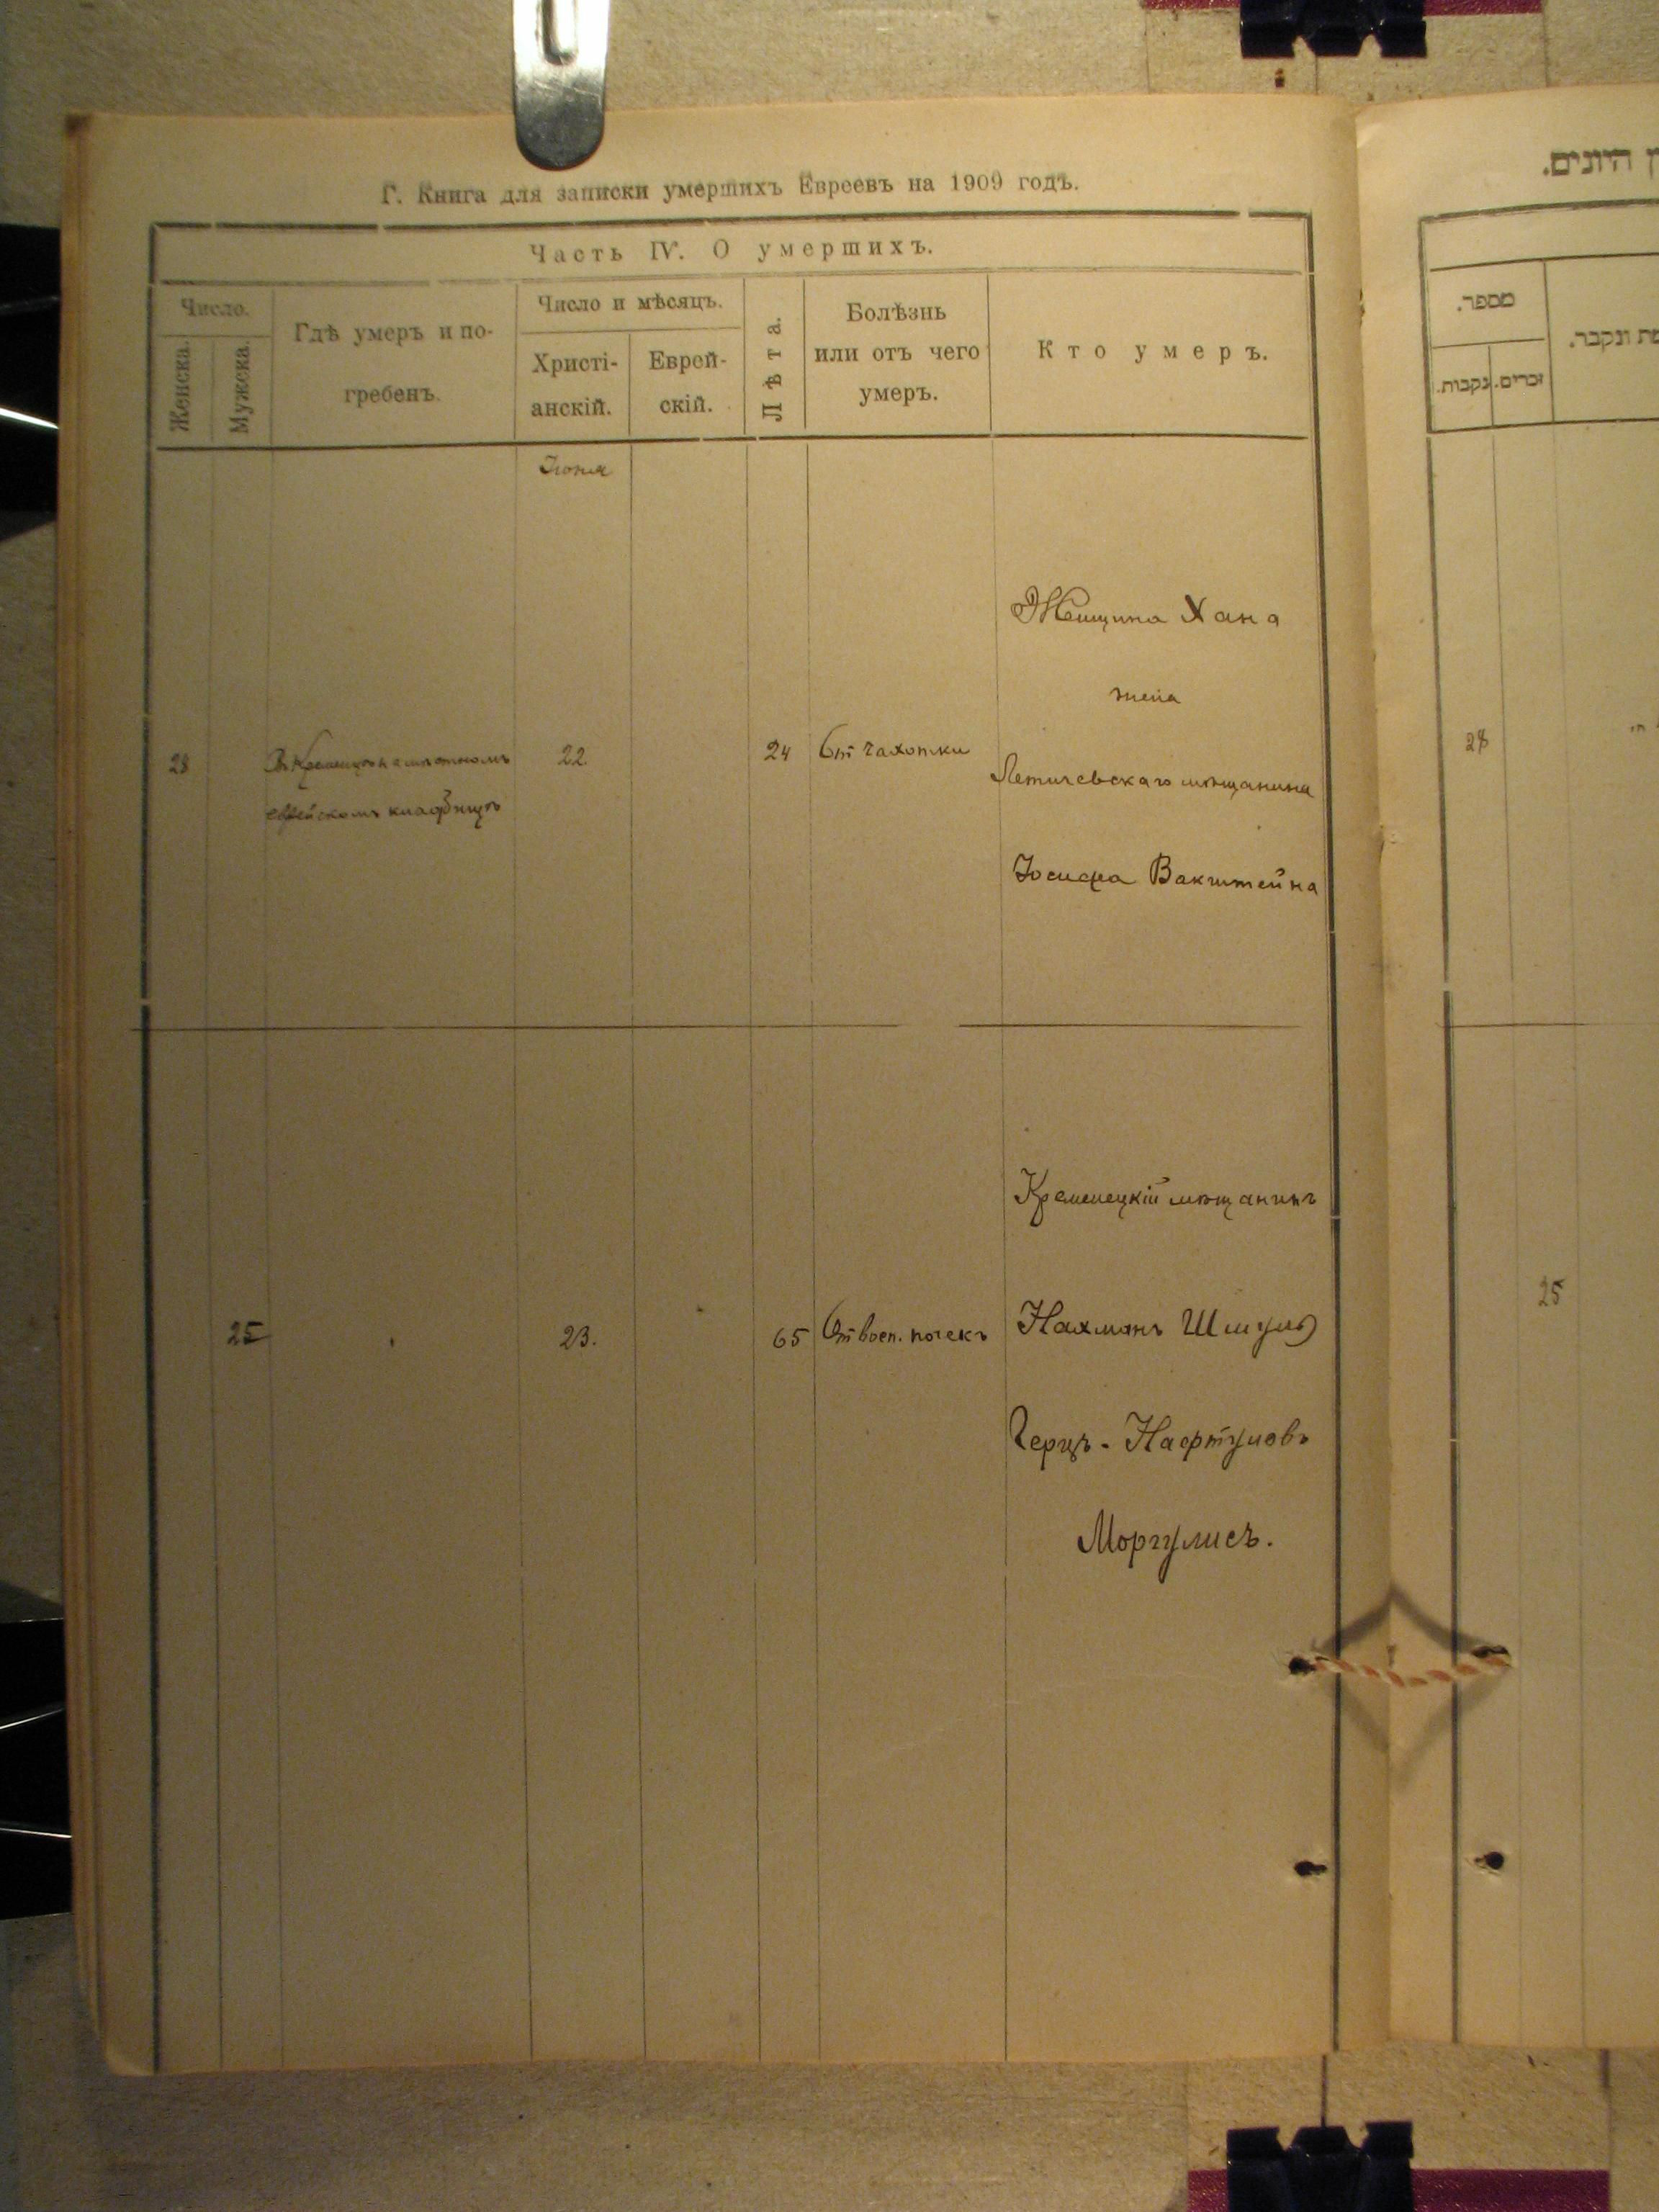 Г. Книга для записки умершихъ Евреевъ на 1909 годъ.
Часть IV. О умершихъ.
Число.
Женска.
Мужска.
Гдѣ умеръ и по-
гребенъ.
Число и мѣсяцъ.
Христі-
анскій.
Еврей-
скій.
Лѣта.
Болѣзнь
или отъ чего
умеръ.
Кто умеръ.
Іюня
28
Въ Кременцѣ на мѣстномъ
еврейскомъ кладбищѣ
22.
24
От чахотки
Женщина Хана
жена
Летичевскаго мѣщанина
Іосифа Вакштейна
25
23.
65
От восп. почекъ
Кременецкій мѣщанинъ
Нахманъ Шмуль
Герцъ-Нафтуловъ
Моргулисъ.
ן היונים.
מספר.
נקבות.
זכרים.
מת ונקבר.
28
25